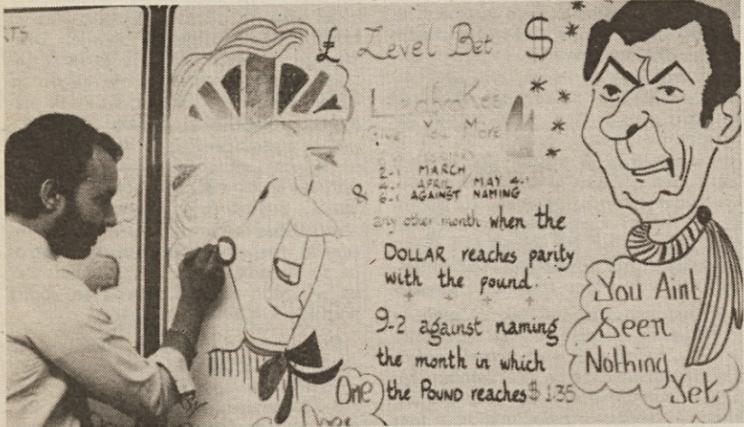 £ Level Bet $
Ladbrokes
Give You More
2-1 MARCH
4-1 APRIL MAY 4-1
& 6-1 AGAINST NAMING
any other month when the
DOLLAR reaches parity
with the pound.
9-2 against naming
the month in which
the POUND reaches $ 1.35
One
Does
You Aint
Seen
Nothing
Yet